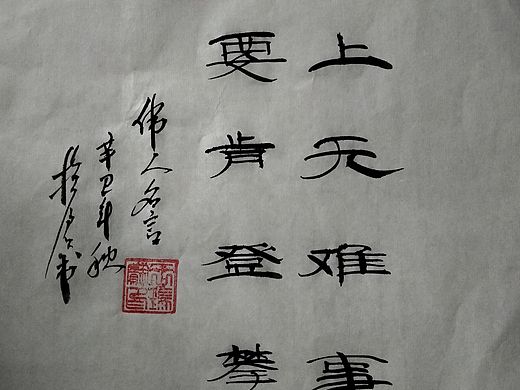 上无难事
要肯登攀
伟人名言
辛丑年秋
书